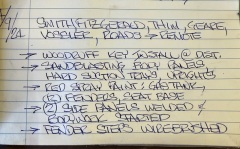 SMITH, FITZGERALD, THIM, GEARE,
VOSSLER, ROADS → REMOTE
→ WOODRUFF KEY INSTALL @ DIST.
→ SANDBLASTING BODY PANELS
HARD SUCTION TRAYS, UPRIGHTS
→ RED SPRAY PAINT: GAS TANK,
(2) FENDERS, SEAT BASE
→ (2) SIDE PANELS WELDED &
BODYWORK STARTED
→ FENDER STEPS WIREBRUSHED